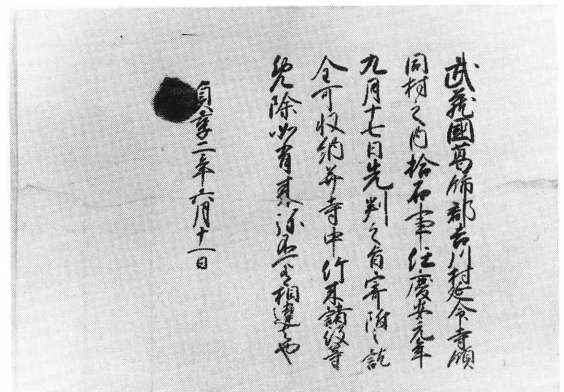 武蔵國葛飾郡吉川村延命寺領
同村之内拾石事任慶安元年
九月十七日先判之旨寄附之訖
全可収納并寺中竹木諸役等
免除如有来弥不可有相違者也
貞享二年六月十一日